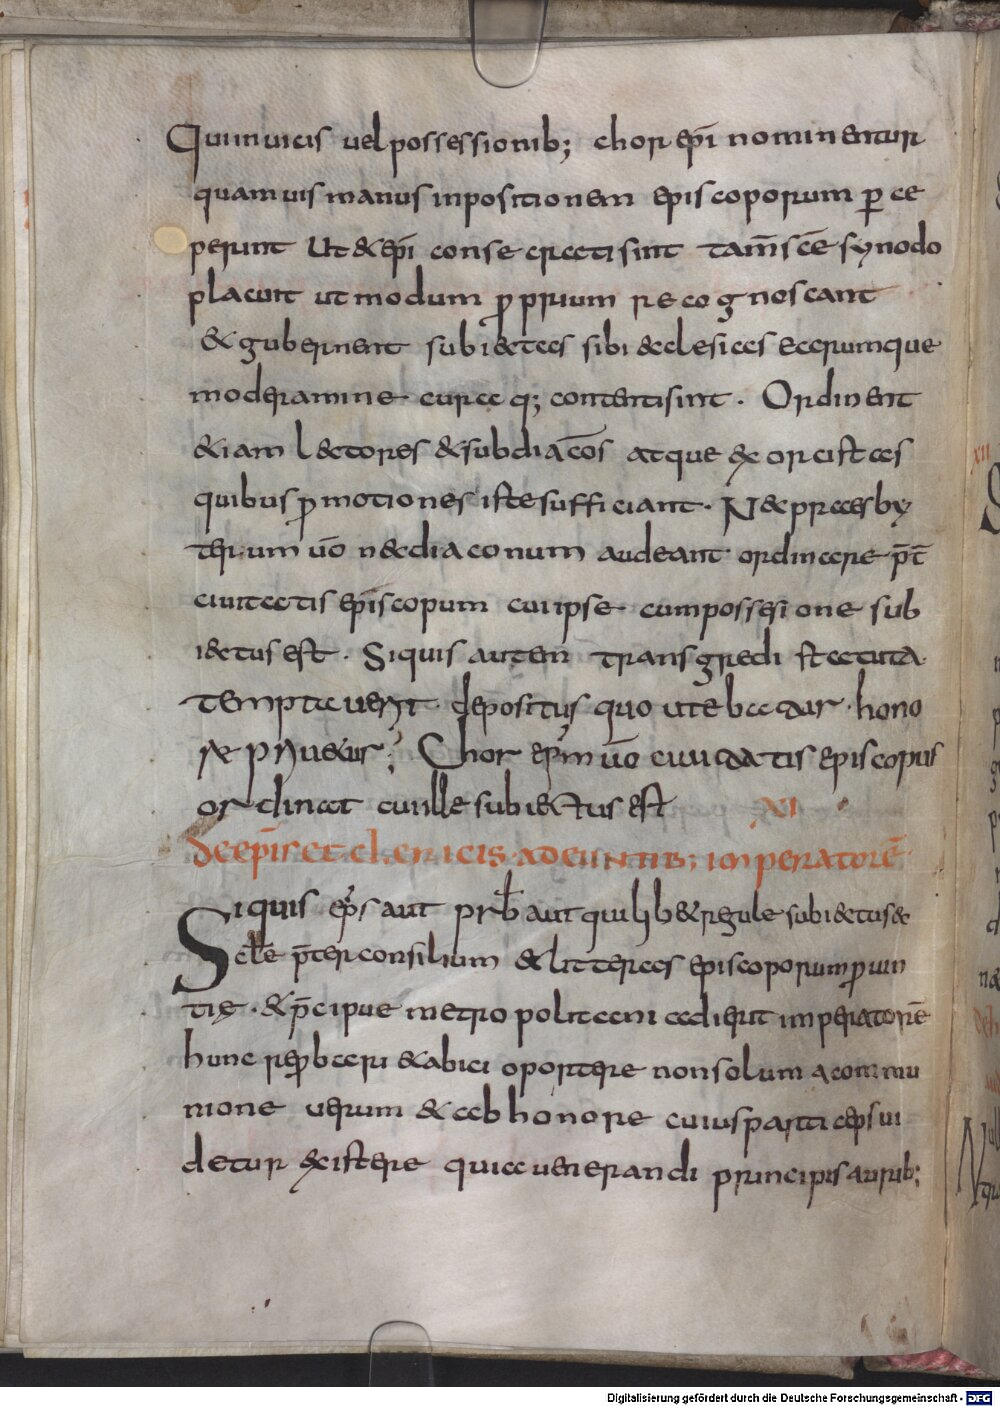 Qui in uicis uel possessionib; chorep̄i nominentur
quamuis manus inpositionem episcoporum ꝑce
perunt Ut & ep̄i consecrati sint tam̄ sc̄e synodo
placuit ut modum ꝓprium recognoscant
& gubernent subiectas sibi aeclesias earumque
moderamine curaq; contenti sint. Ordinent
&iam lectores & subdiac̄os atque exorcistas
quibus ꝓmotiones iste sufficiant. Nec praesby
terum ūo nec diaconum audeant ordinare p̄t
ciuitatis ep̄iscopum cui ipse cum possesione sub
iectus est. Siquis autem transgredi statuta
temptauerit depositus quo utebatur hono
re priuetur; Chorep̄m ūo ciuitatis episcopus
ordinat cui ille subiectus est XI
De ep̄is et clericis adeuntib; imperatorē
Siquis ep̄s aut prb̄ aut quilib& regule subiectus ae
ccl̄e p̄ter consilium & litteras episcoporum ꝓuin
tię. & p̄cipue metropolitani adierit imperatorē
hunc reꝓbari & abici oportere non solum a commu
nione uerum & ab honore cuius particeps ui
detur existere quia uenerandi principis aurib;
Digitalisierung gefördert durch die Deutsche Forschungsgemeinschaft - DFG